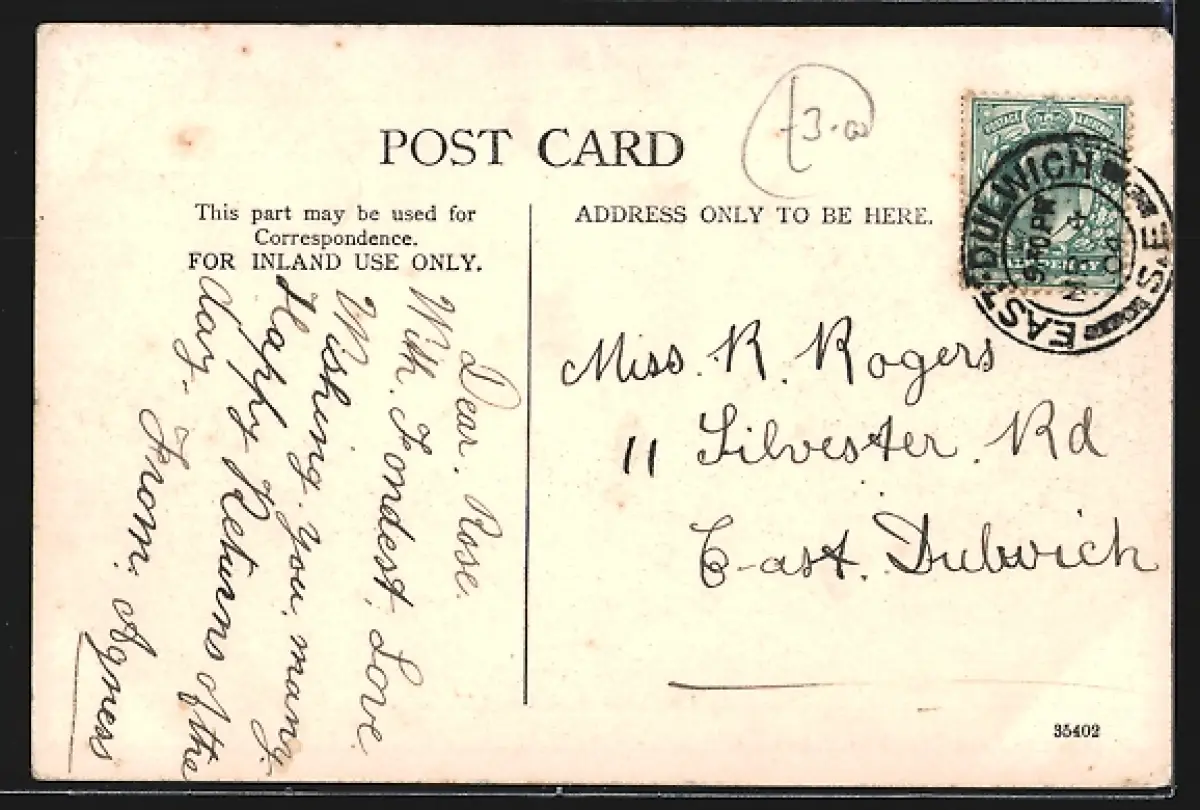 POST CARD
This part may be used for
Correspondence.
FOR INLAND USE ONLY.
ADDRESS ONLY TO BE HERE.
Dear. Rose.
With. Fondest. Love.
Wishing. you. many.
Happy Returns of the
day.
From. Agness
Miss. R. Rogers
11 Silvester. Rd
East. Dulwich
EAST DULWICH S.E.
9 30 PM
MR 4
04
35402